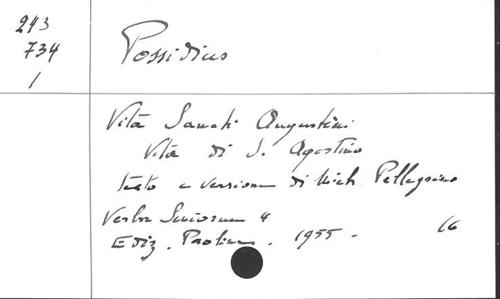 243
734
1
Possidius
Vita Sancti Augustini
Vita di S. Agostino
testo e versione di Mich. Pellegrino
Verba Seniorum 4
Ediz. Paoline. 1955 -
16